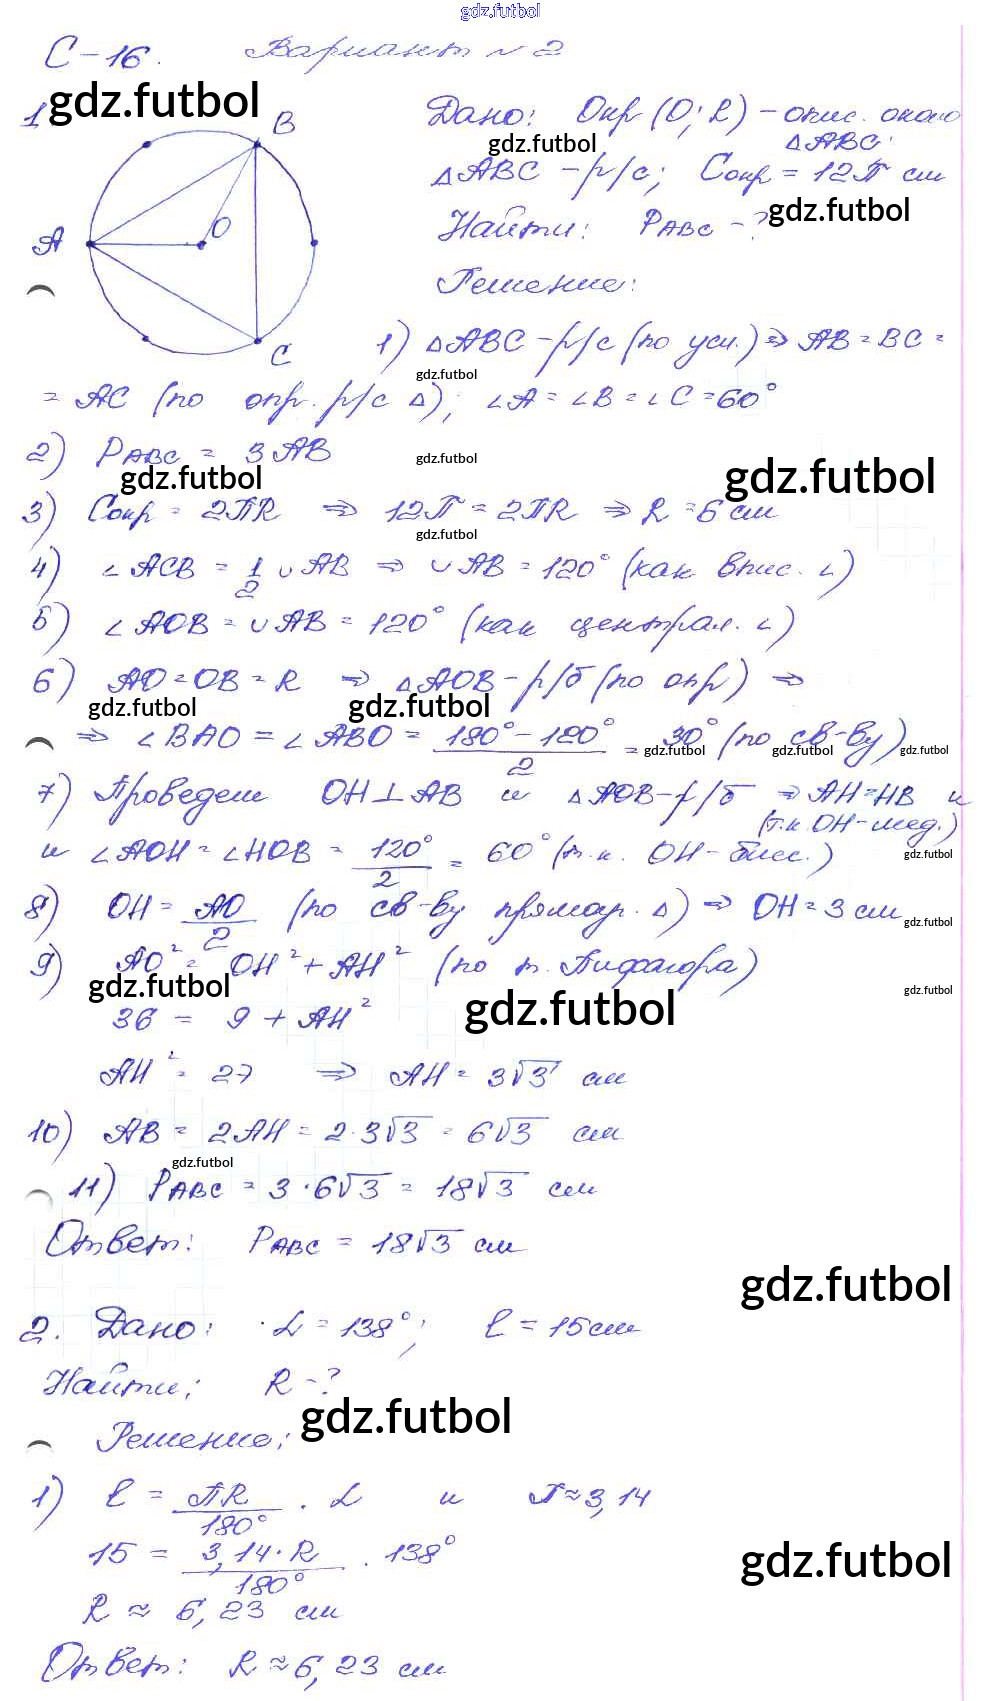 gdz.futbol
С-16. Вариант №2
1. gdz.futbol
B
O
A
C
Дано: Окр(O; R) - опис. около
gdz.futbol
△ABC.
△ABC - р/с; Cокр = 12π см
gdz.futbol
Найти: PABC - ?
Решение:
1) △ABC - р/с (по усл.) ⇒ AB = BC =
gdz.futbol
= AC (по опр. р/с △); ∠A = ∠B = ∠C = 60°
2) PABC = 3AB
gdz.futbol
gdz.futbol
gdz.futbol
3) Cокр = 2πR ⇒ 12π = 2πR ⇒ R = 6 см
gdz.futbol
4) ∠ACB = 1/2 ∪AB ⇒ ∪AB = 120° (как впис. ∠)
5) ∠AOB = ∪AB = 120° (как централ. ∠)
6) AO = OB = R ⇒ △AOB - р/б (по опр) ⇒
gdz.futbol
gdz.futbol
⇒ ∠BAO = ∠ABO = (180° - 120°)/2 = 30° (по св-ву)
gdz.futbol
gdz.futbol
gdz.futbol
7) Проведем OH ⊥ AB и △AOB - р/б ⇒ AH = HB и
(т.к. OH - мед.)
и ∠AOH = ∠HOB = 120°/2 = 60° (т.к. OH - бисс.)
gdz.futbol
8) OH = AO/2 (по св-ву прямоуг. △) ⇒ OH = 3 см
gdz.futbol
9) AO² = OH² + AH² (по т. Пифагора)
gdz.futbol
gdz.futbol
gdz.futbol
36 = 9 + AH²
AH² = 27 ⇒ AH = 3√3 см
10) AB = 2AH = 2·3√3 = 6√3 см
gdz.futbol
11) PABC = 3·6√3 = 18√3 см
Ответ: PABC = 18√3 см
gdz.futbol
2. Дано: α = 138°; l = 15 см
Найти: R - ?
gdz.futbol
Решение:
1) l = πR/180° · α и π ≈ 3,14
15 = 3,14·R/180° · 138°
gdz.futbol
R ≈ 6,23 см
Ответ: R ≈ 6,23 см